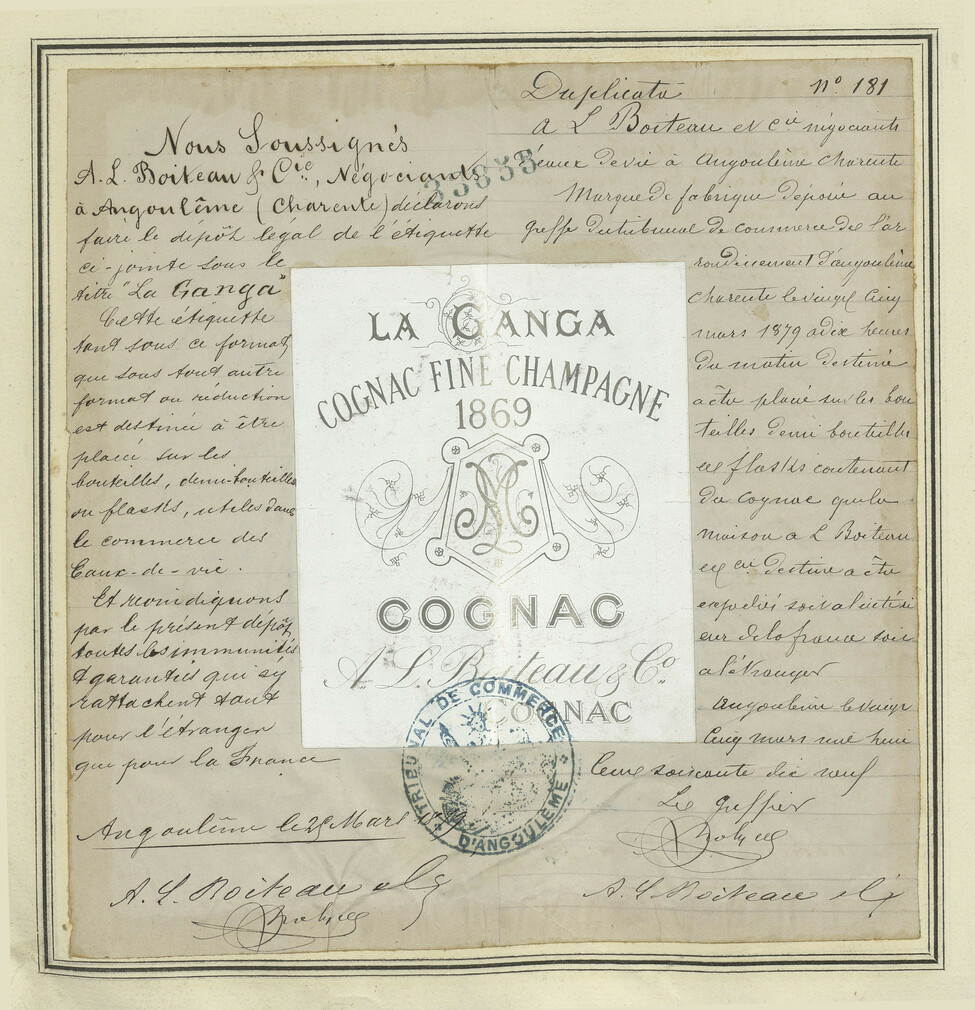 Nous Soussignés
A. L. Boiteau & Cie, Négociants
à Angoulême (Charente) déclarons
faire le dépôt légal de l'étiquette
ci-jointe sous le
titre "La Ganga"
Cette étiquette
tant sous ce format
que sous tout autre
format ou réduction
est destinée à être
placée sur les
bouteilles, demi-bouteilles
ou flasks, utiles dans
le commerce des
Eaux-de-vie.
Et revindiquons
par le présent dépôt
toutes les immunités
& garanties qui s'y
rattachent tant
pour l'étranger
que pour la France
Angoulême le 25 Mars
A. L. Boiteau & Cie
33833
LA GANGA
COGNAC FINE CHAMPAGNE
1869
COGNAC
A. L. Boiteau & Co.
COGNAC
TRIBUNAL DE COMMERCE
D'ANGOULEME
Duplicata No 181
A L Boiteau et Cie négociants
eaux de vie à Angoulême Charente
Marque de fabrique déposée au
greffe du tribunal de commerce de l'ar
rondissement d'angoulême
Charente le vingt cinq
mars 1879 a dix heures
du matin destinée
a être placée sur les bou
teilles demi bouteilles
et flasks contenant
du cognac que la
maison A L Boiteau
et Cie destine a être
expédiés soit a l'intéri
eur de la france soit
a l'étranger
Angoulême le vingt
cinq mars mil huit
cent soixante dix neuf
Le Greffier
A. L. Boiteau & Cie